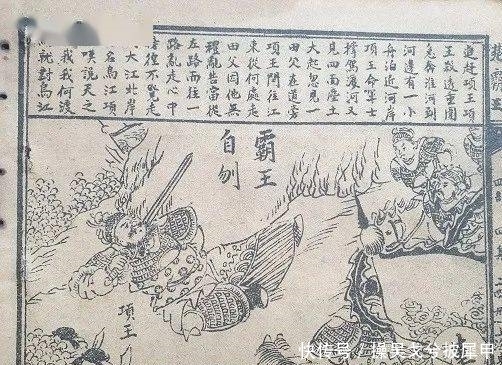 追赶項王項
王殺透重圍
急奔淮河到
河邊有一小
舟泊近河岸
項王命軍士
撐駕渡河又
見四面塵土
大起忽見一
田父在道旁
項王問往江
東從何處走
田父因他無
禮亂告當從
左路而往一
路亂走心中
徨不覺走
大江北岸
名烏江項
嘆說天之
我我何渡
就對烏江
霸王
自刎
項王
快传号/操吴戈兮披犀甲